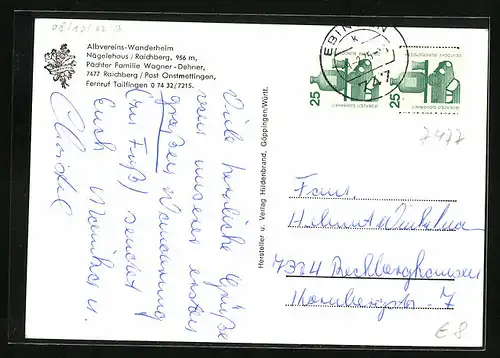 08/13/32 D
Albvereins-Wanderheim
Nägelehaus / Raichberg, 956 m,
Pächter Familie Wagner-Dehner,
7477 Raichberg / Post Onstmettingen,
Fernruf Tailfingen 0 74 32 / 7215.
Viele herzliche Grüße
von unserer ersten
großen Wanderung
(zu Fuß) sendet
Euch
Christel
Hersteller u. Verlag Hildenbrand, Göppingen/Württ.
EBINGEN
25
25
7477
Fam.
Helmut
7324 Rechberghausen
Hornbergstr. 7
€8